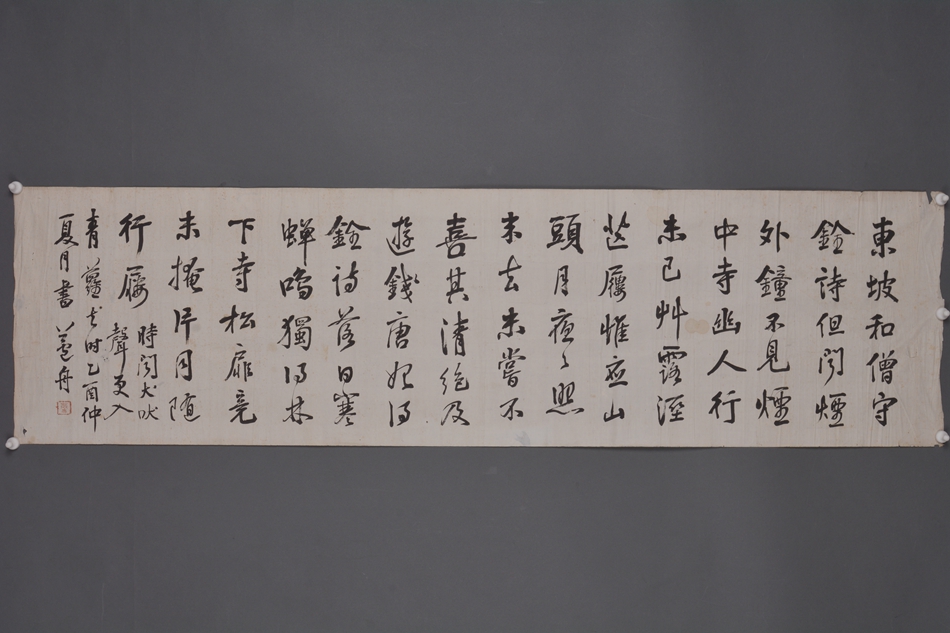 東坡和僧守
銓詩但聞煙
外鐘不見煙
中寺幽人行
未已艸露溼
芒屨惟应山
頭月夜々照
来去未嘗不
喜其清絶及
遊錢唐始得
銓詩落日寒
蝉鳴獨得林
下寺松扉竟
未掩片月随
行屨時聞犬吠
聲更入
青蘿去时乙酉仲
夏月書 舟